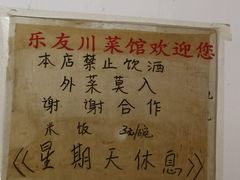 乐友川菜馆欢迎您
本店禁止饮酒
外菜莫入
谢 谢合作
米 饭 3元/碗
《星期天休息》